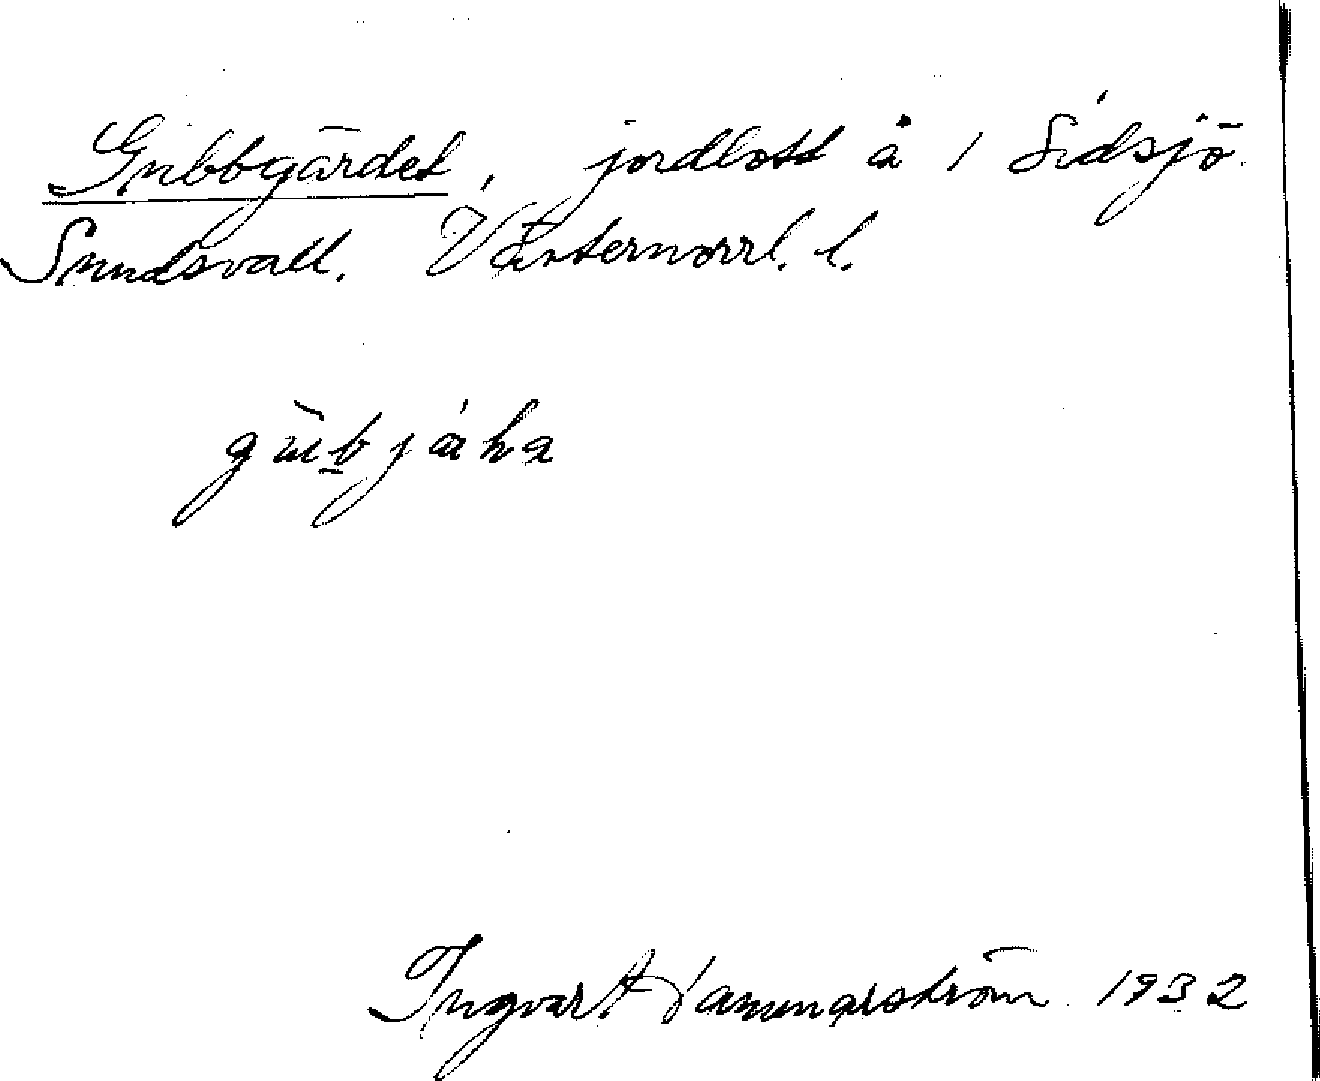 Gubbgärdet, jordlott å 1 Sidsjö.
Sundsvall. Västernorrl. l.
Ingvar Hammarström 1932